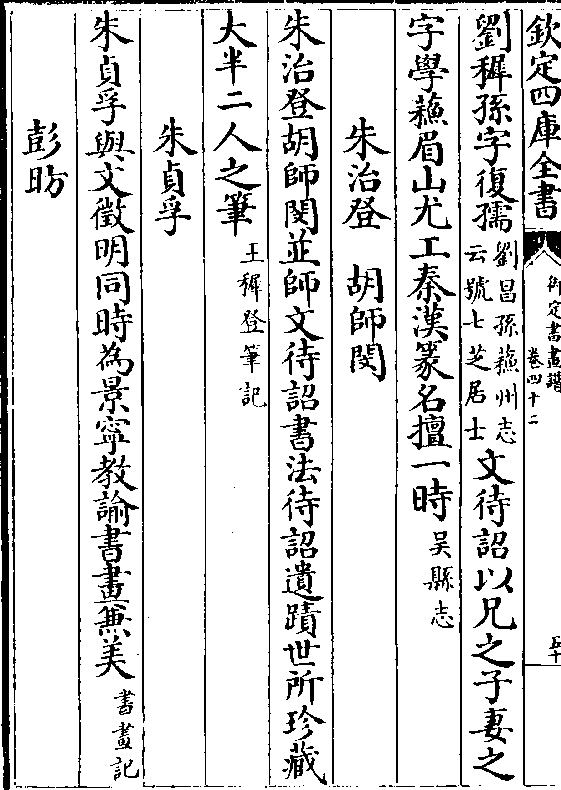 欽定四庫全書
御定書畫譜
卷四十二
五十
劉穉孫字復孺劉昌孫蘇州志云號七芝居士文待詔以兄之子妻之
字學蘇眉山尤工秦漢篆名擅一時吴縣志
朱治登　胡師閔
朱治登胡師閔並師文待詔書法待詔遺蹟世所珍藏
大半二人之筆王穉登筆記
朱貞孚
朱貞孚與文徵明同時為景寧教諭書畫兼美書畫記
彭昉